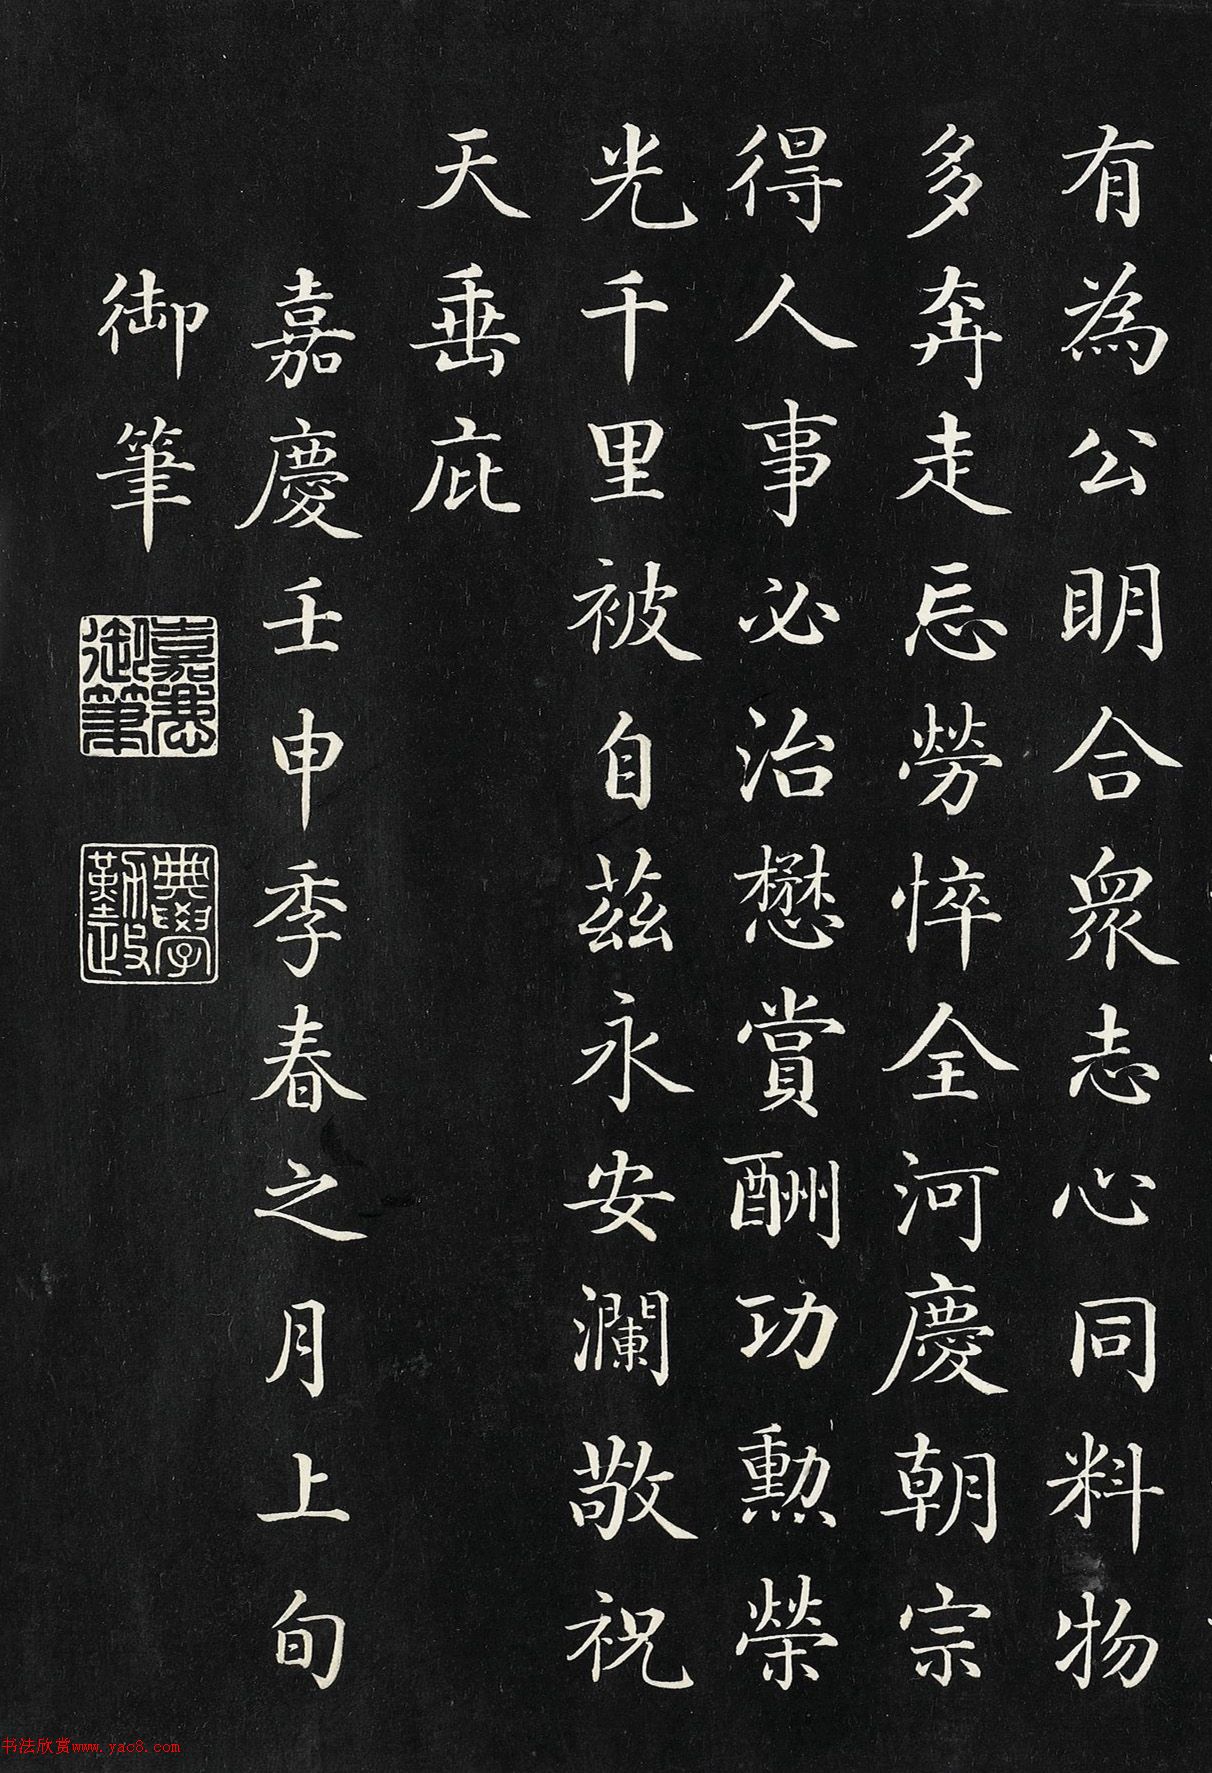 有為公明合眾志心同料物
多奔走忘勞悴全河慶朝宗
得人事必治懋賞酬功勳榮
光千里被自茲永安瀾敬祝
天垂庇
嘉慶壬申季春之月上旬
御筆
嘉慶
御筆
典學
勤政
书法欣赏www.yac8.com